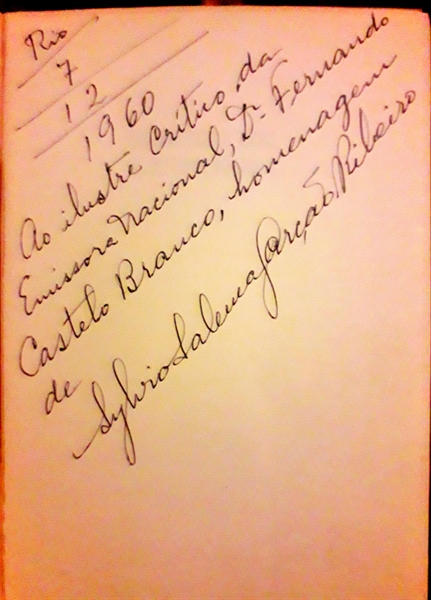 Rio
7
12
1960
Ao ilustre Crítico da
Emissora Nacional, Dr. Fernando
Castelo Branco, homenagem
de
Sylvio Salema Garção Ribeiro